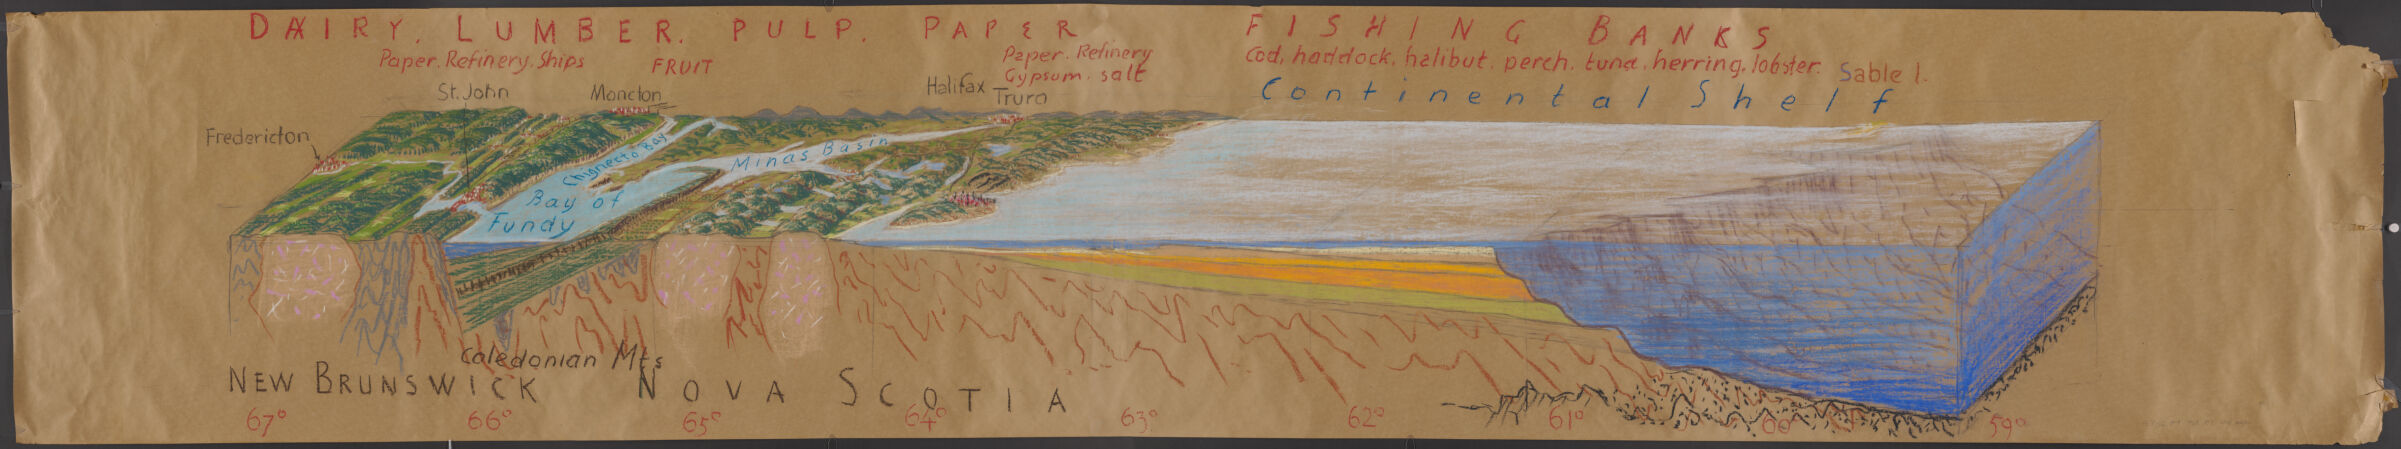 DAIRY. LUMBER. PULP. PAPER
FISHING BANKS
Paper. Refinery. Ships
FRUIT
Paper. Refinery
Gypsum. salt
Cod, haddock, halibut. perch. tuna. herring. lobster.
Sable I.
Continental Shelf
St. John
Moncton
Halifax
Truro
Fredericton
Chignecto Bay
Minas Basin
Bay of
Fundy
Caledonian Mts
NEW BRUNSWICK
NOVA SCOTIA
67° 66° 65° 64° 63° 62° 61° 60° 59°